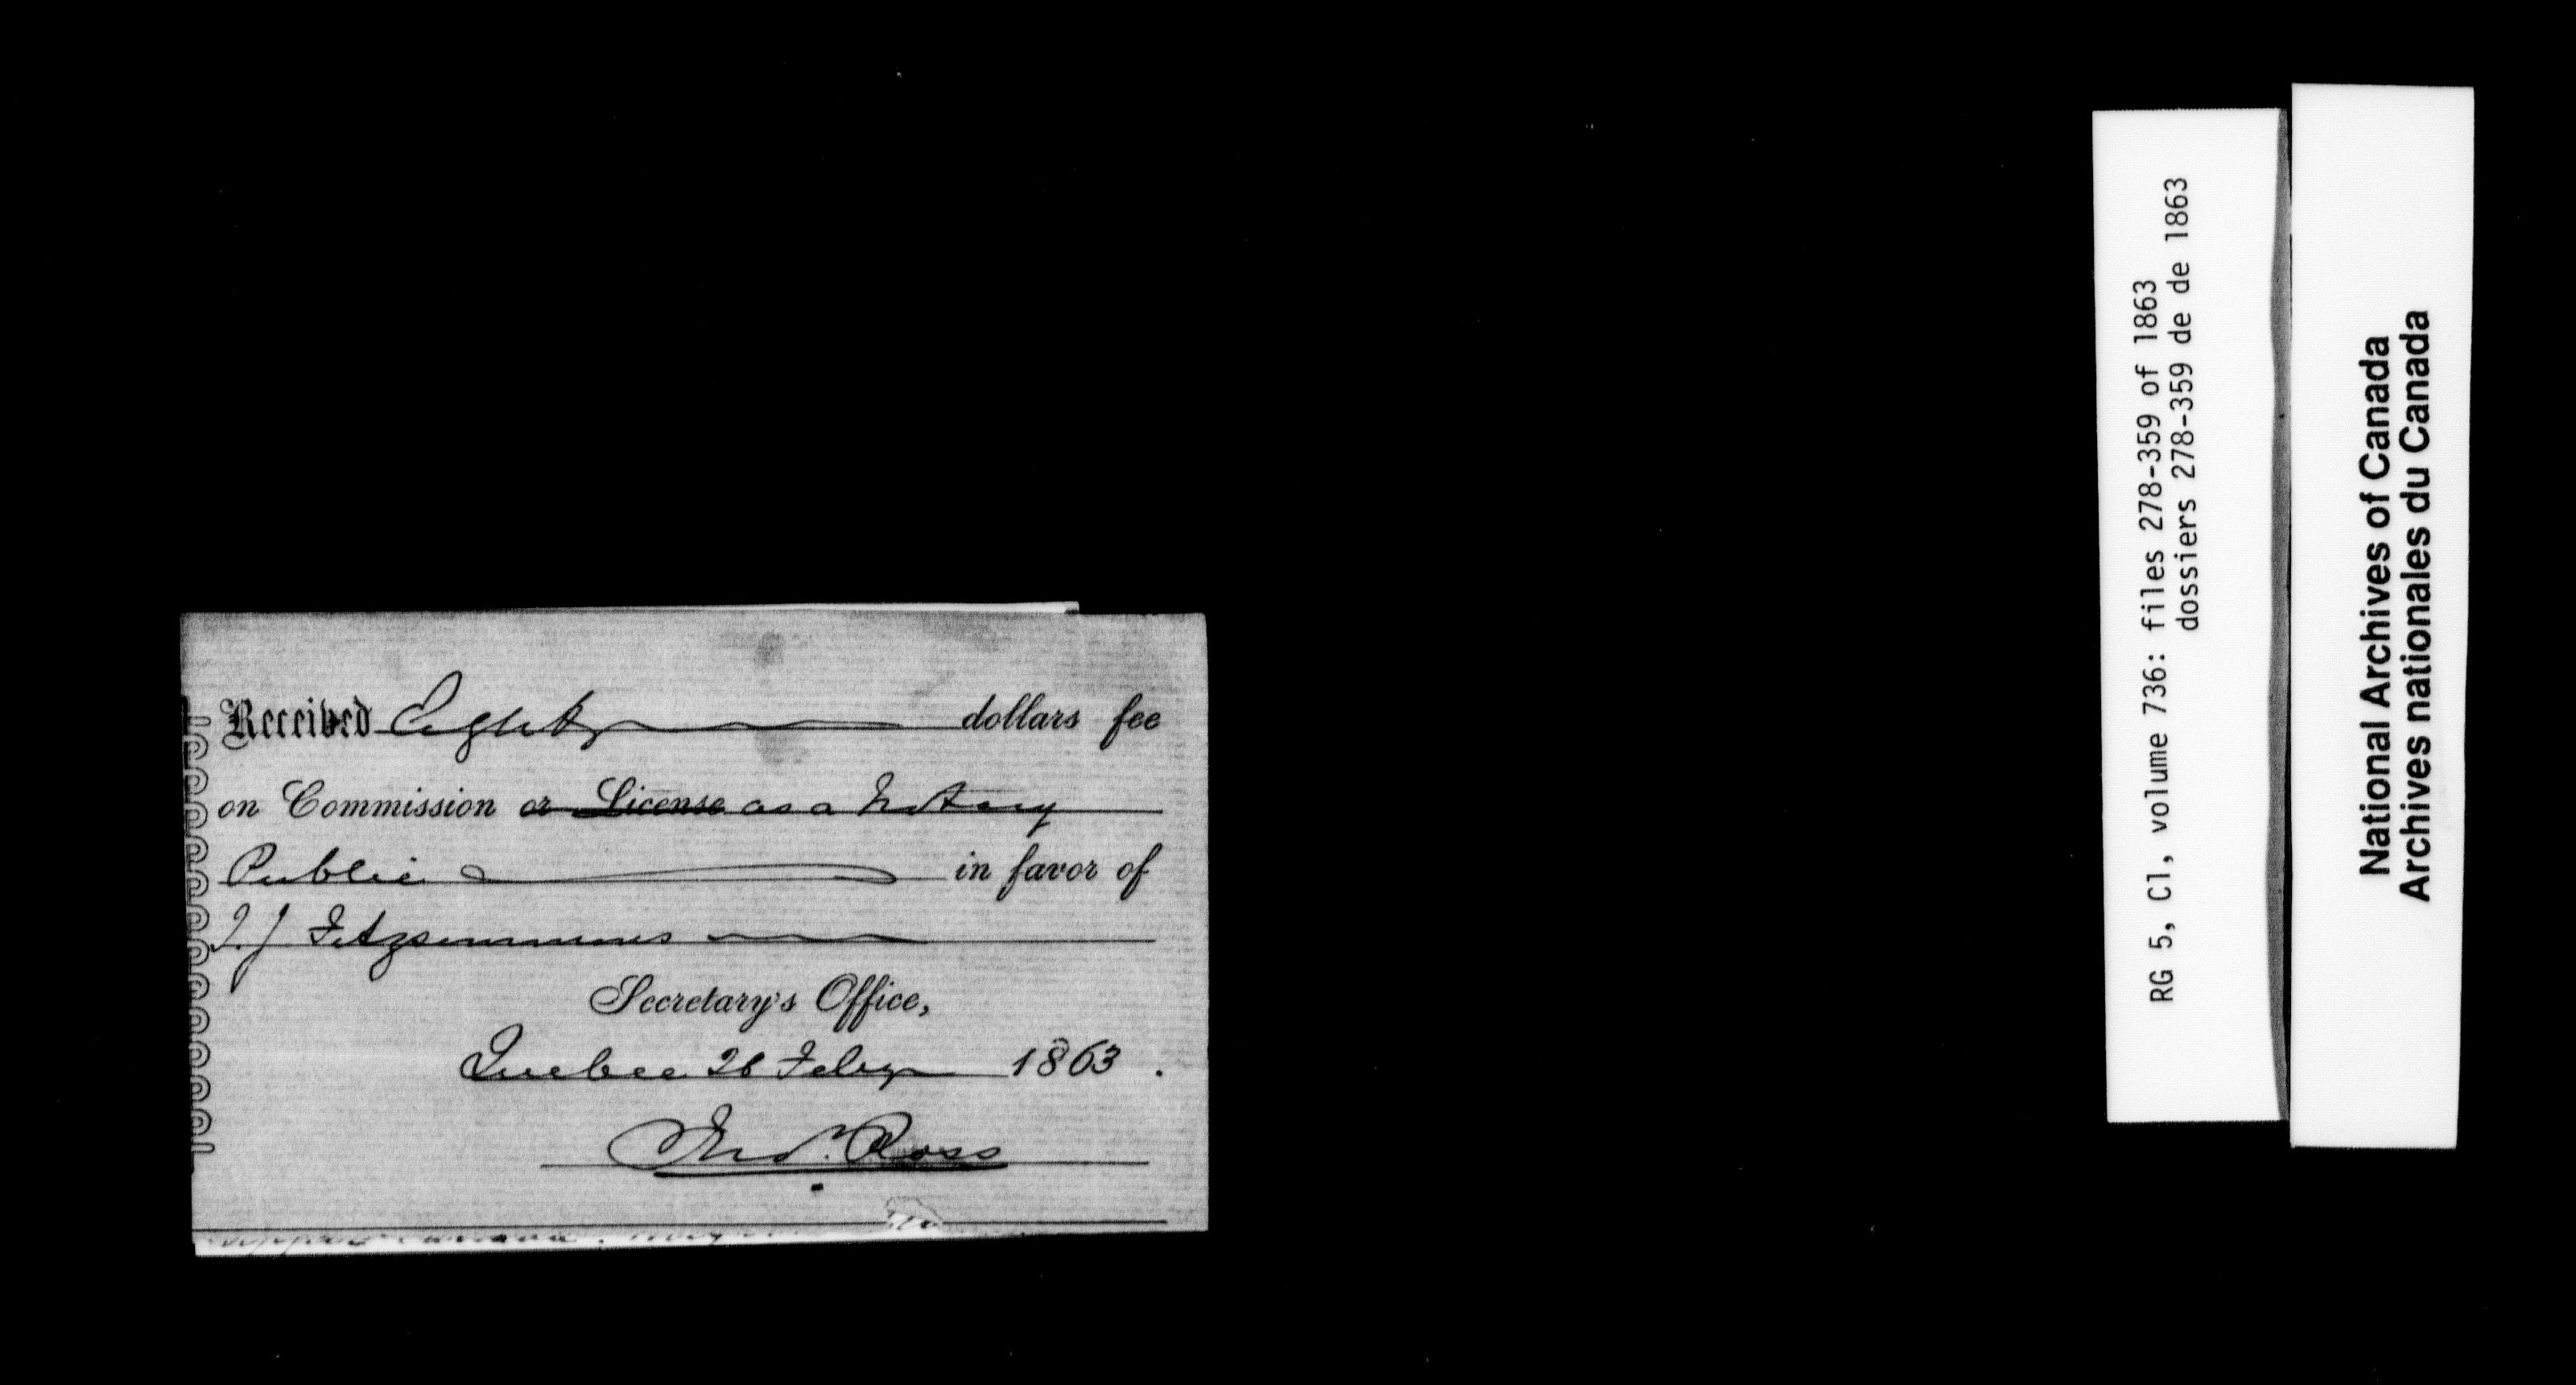 Received Eight dollars fee
on Commission or License as a Notary
Public in favor of
J. J Fitzsimmons
Secretary's Office,
Quebec 26 Feby 1863.
Thos. Ross
RG 5, C1, volume 736: files 278-359 of 1863
dossiers 278-359 de de 1863
National Archives of Canada
Archives nationales du Canada